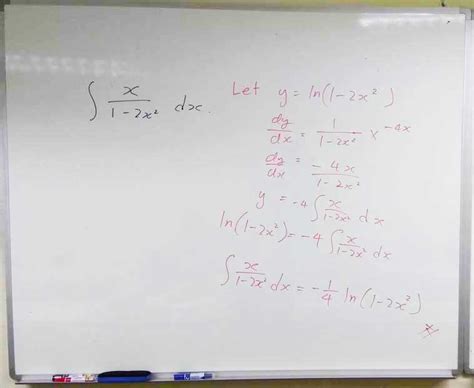 ∫ x/(1-2x²) dx.
Let y = ln(1-2x²)
dy/dx = 1/(1-2x²) × -4x
dy/dx = -4x/(1-2x²)
y = -4 ∫ x/(1-2x²) dx
ln(1-2x²) = -4 ∫ x/(1-2x²) dx
∫ x/(1-2x²) dx = -1/4 ln(1-2x²)